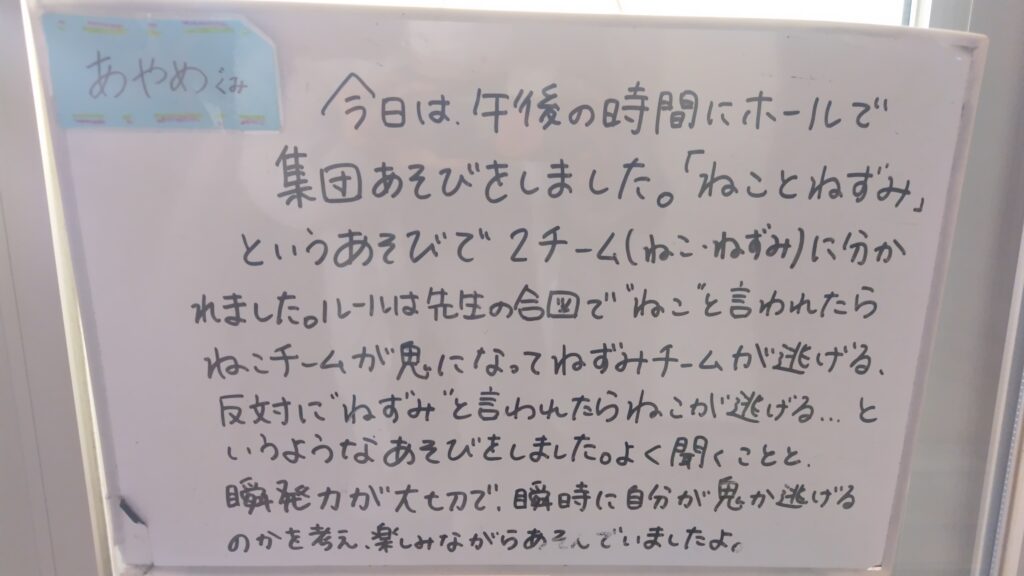 あやめぐみ
今日は、午後の時間にホールで
集団あそびをしました。「ねことねずみ」
というあそびで2チーム(ねこ・ねずみ)に分か
れました。ルールは先生の合図で"ねこ"と言われたら
ねこチームが鬼になってねずみチームが逃げる、
反対に"ねずみ"と言われたらねこが逃げる…と
いうようなあそびをしました。よく聞くことと、
瞬発力が大切で、瞬時に自分が鬼か逃げる
のかを考え、楽しみながらあそんでいましたよ。